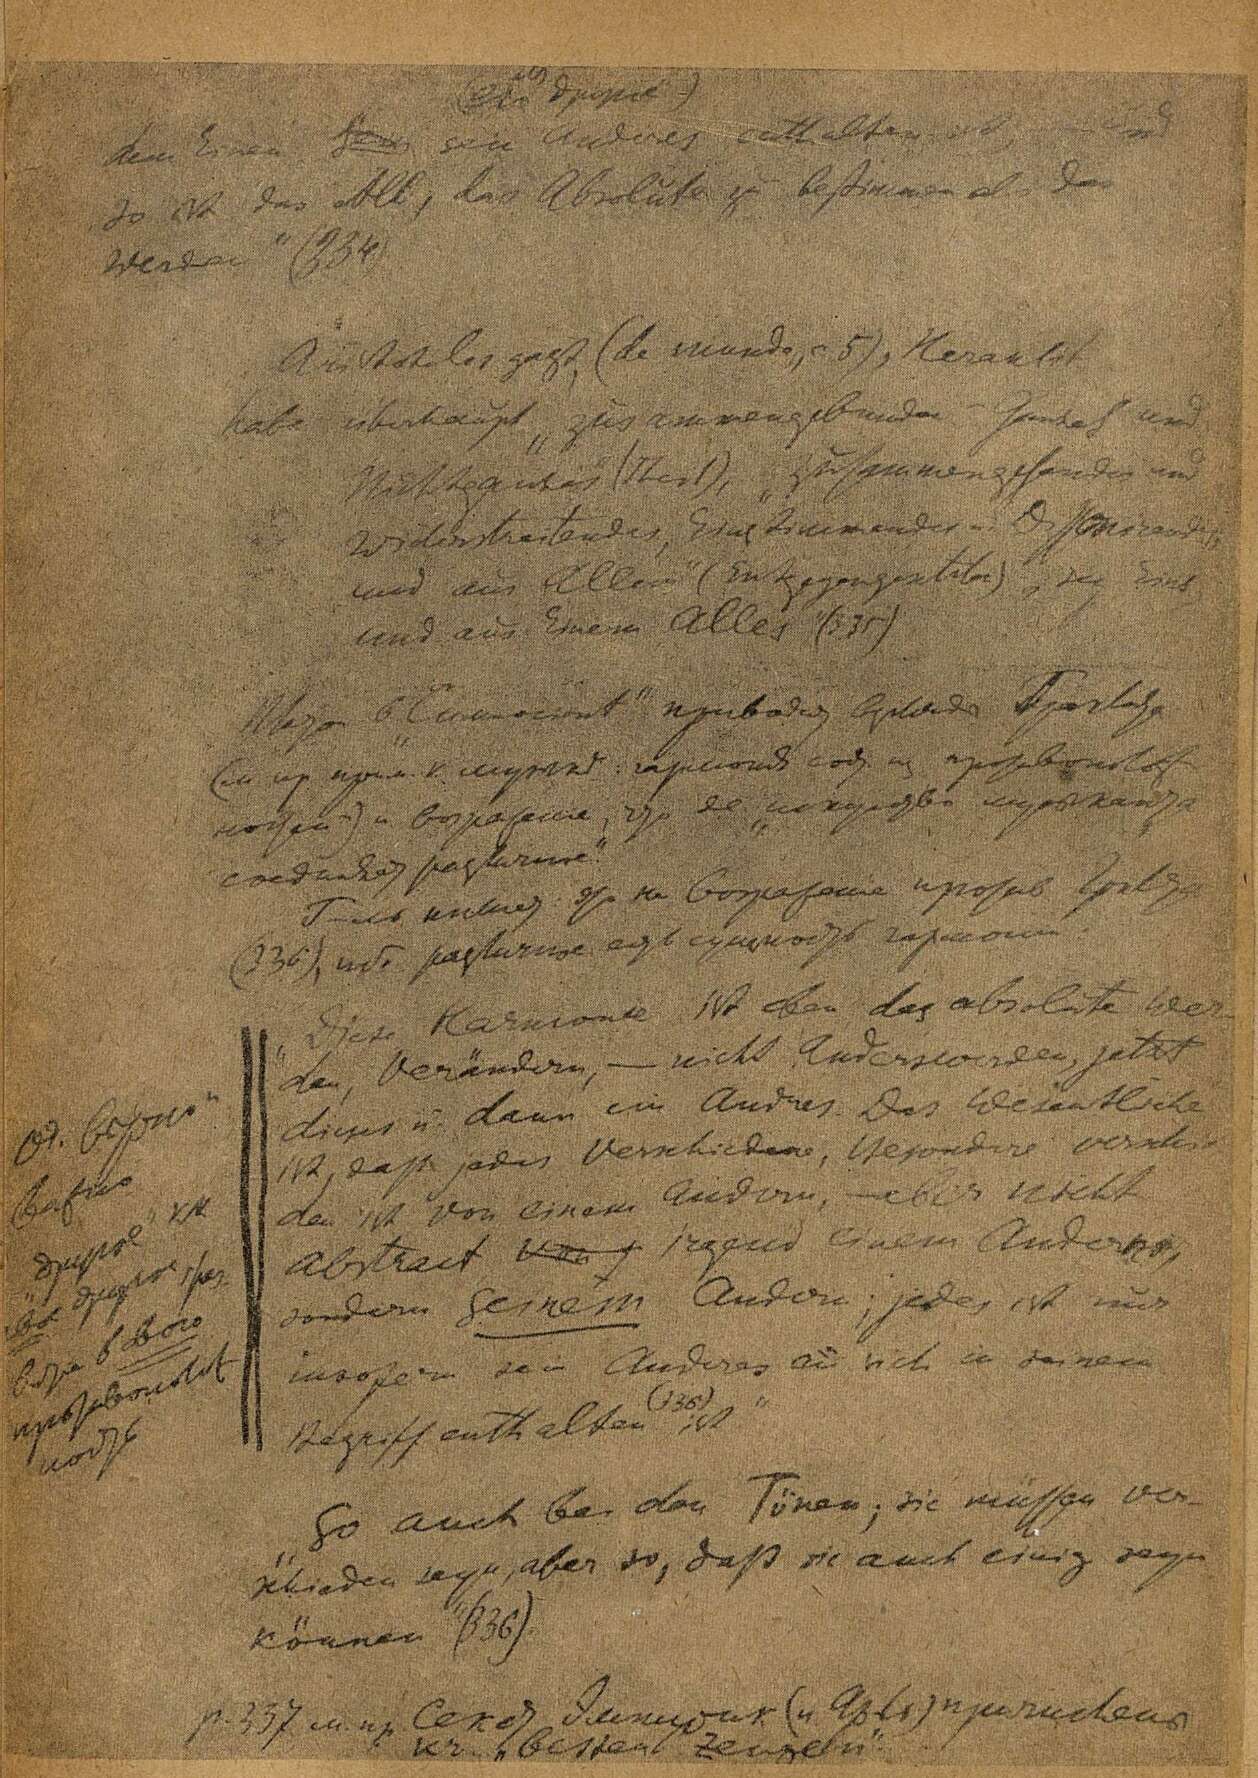 (его другое)
dem Einen sein Anderes enthalten ist, — und
so ist das All, das Absolute zu bestimmen als das
Werden" (334)
Aristoteles sagt (de mundo, c 5), Heraklit
habe überhaupt „zusammengebunden Ganzes und
Nichtganzes" (Theil), „zusammengehendes und
widerstreitendes, Einstimmendes u. Dissonirendes,
und aus Allem" (Entgegengesetzten) „sey Eins,
und aus Einem Alles" (335)
в „Симпосионе" приводит взгляды Гераклита
(м. пр. прим. к музыке: гармония сост. из противополож-
ностей) и возражение, что де „искусство музыканта
соединяет различное".
Гегель пишет: это не возражение против Гераклита
(336), ибо различие есть сущность гармонии:
„Diese Harmonie ist eben das absolute Wer-
den, Verändern, — nicht Anderswerden, jetzt
dieses u. dann ein Andres. Das Wesentliche
ist, daß jedes Verschiedene, Besondere verschie-
den ist von einem Andern, — aber nicht
abstract von irgend einem Andern,
sondern seinem Andern; jedes ist nur
insofern sein Anderes an sich in seinem
Begriff enthalten ist" (336)
Оч. верно
важно
„другое" как
свое другое, раз-
витие в свою
противополож-
ность
„So auch bei den Tönen; sie müssen ver-
schieden seyn, aber so, daß sie auch einig seyn
können" (336)
p. 337 м. пр. Секст Эмпирик (и ) причислены
к „besten Zeugen".